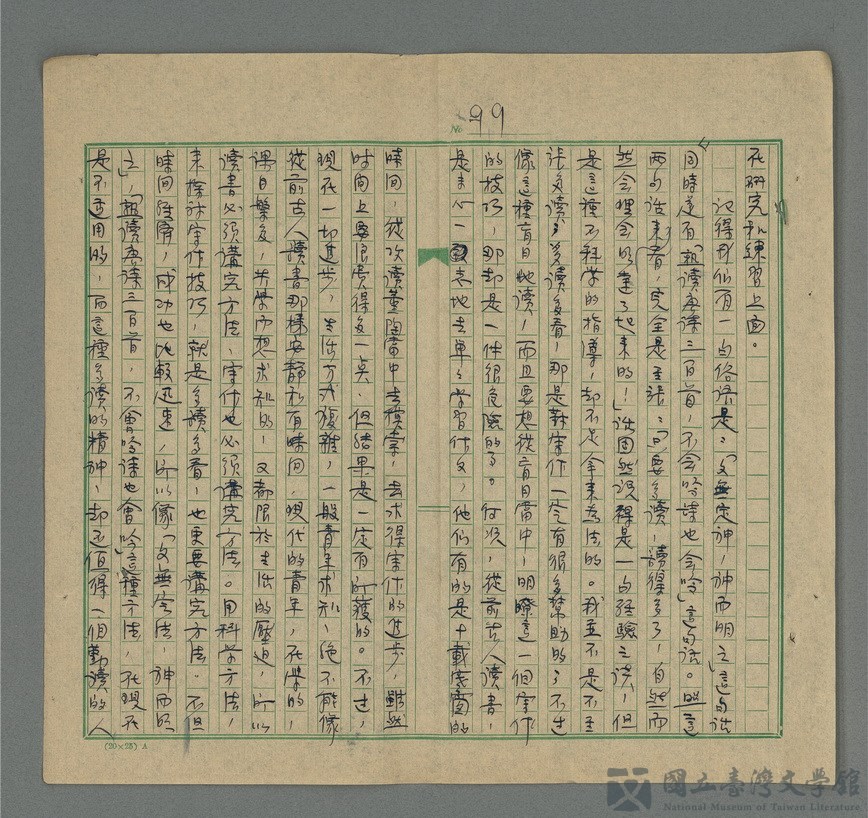 No 99
在研究和練習上面。
記得我們有一句俗語是：「文無定神，神而明之」這句話
同時還有「熟讀唐詩三百首，不會吟詩也會吟」這句話。照這
兩句話來看，完全是主張：「要多讀，讀得多了，自然而
然會理會的 了起來的！」話固然說得是一句經驗之談，但
是這種不科學的指導，却不是拿來為法的。我並不是不主
張多讀，多讀多看，那是對寫作一定有很多幫助的；不过
像這種盲目地讀，而且要想從盲目當中，明瞭這一個寫作
的技巧，那却是一件很危險的了。何況，從前古人讀書，
是專心一志地去單々学習作文，他們有的是十載寒窗的
時间，從攻讀薰陶當中去摸索，去求得寫作的進步，雖然
时间上要很費得多一矣，但結果是一定有所獲的。不过，
現在一切進步，生活方式複雜，一般青年求知，絕不能像
從前古人讀書那樣安靜和有時间，現代的青年，在學的，
課目繁多，失學而想求知的，又都限於生活的壓迫，所以
讀書必須講究方法，寫作也必須講究方法。用科学方法，
来探討寫作技巧，就是多讀多看，也更要講究方法。不但
時间經濟，成功也比較迅速，所以像「文無定法，神而明
之」，「熟讀唐詩三百首，不會吟詩也會吟」這種方法，在現在
是不適用的，而這種多讀的精神，却还值得一個勤讀的人
(20×25) A
國立臺灣文學館
National Museum of Taiwan Literature